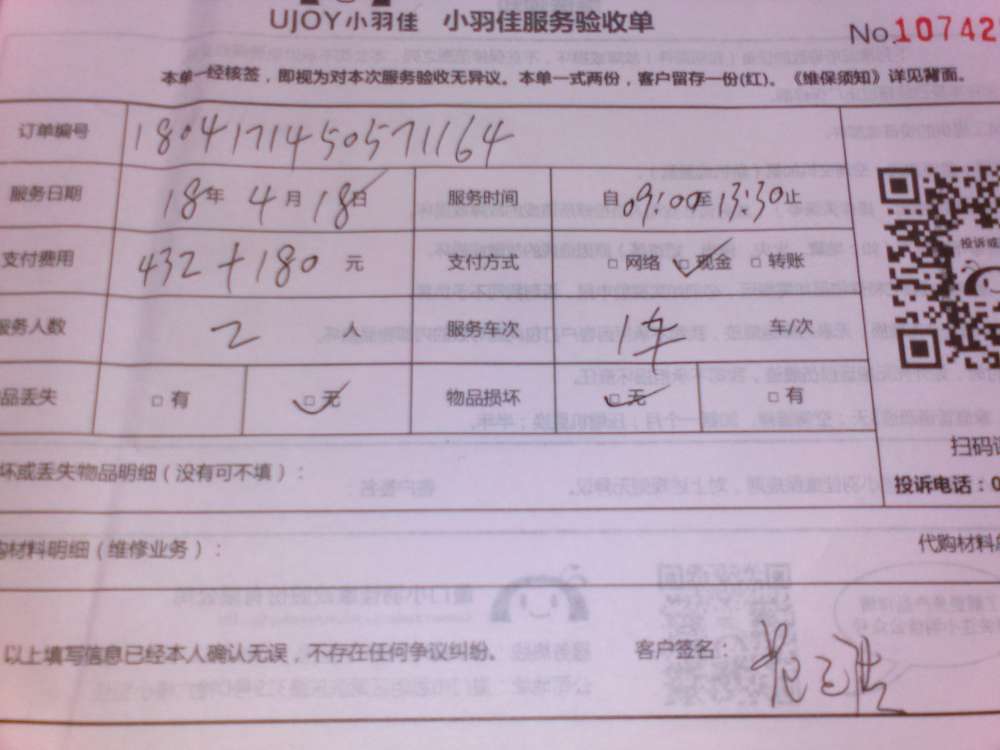 UJOY小羽佳 小羽佳服务验收单
No.10742
本单一经核签，即视为对本次服务验收无异议。本单一式两份，客户留存一份(红)。《维保须知》详见背面。
订单编号 1804171450571164
服务日期 18年 4月 18日 服务时间 自09:00至13:30止
支付费用 432+180 元 支付方式 □网络 ☑现金 □转账
服务人数 2 人 服务车次 1车 车/次
品丢失 □有 ☑无 物品损坏 ☑无 □有
坏或丢失物品明细（没有可不填）：
购材料明细（维修业务）：
代购材料
投诉或
扫码
投诉电话：0
以上填写信息已经本人确认无误，不存在任何争议纠纷。 客户签名：